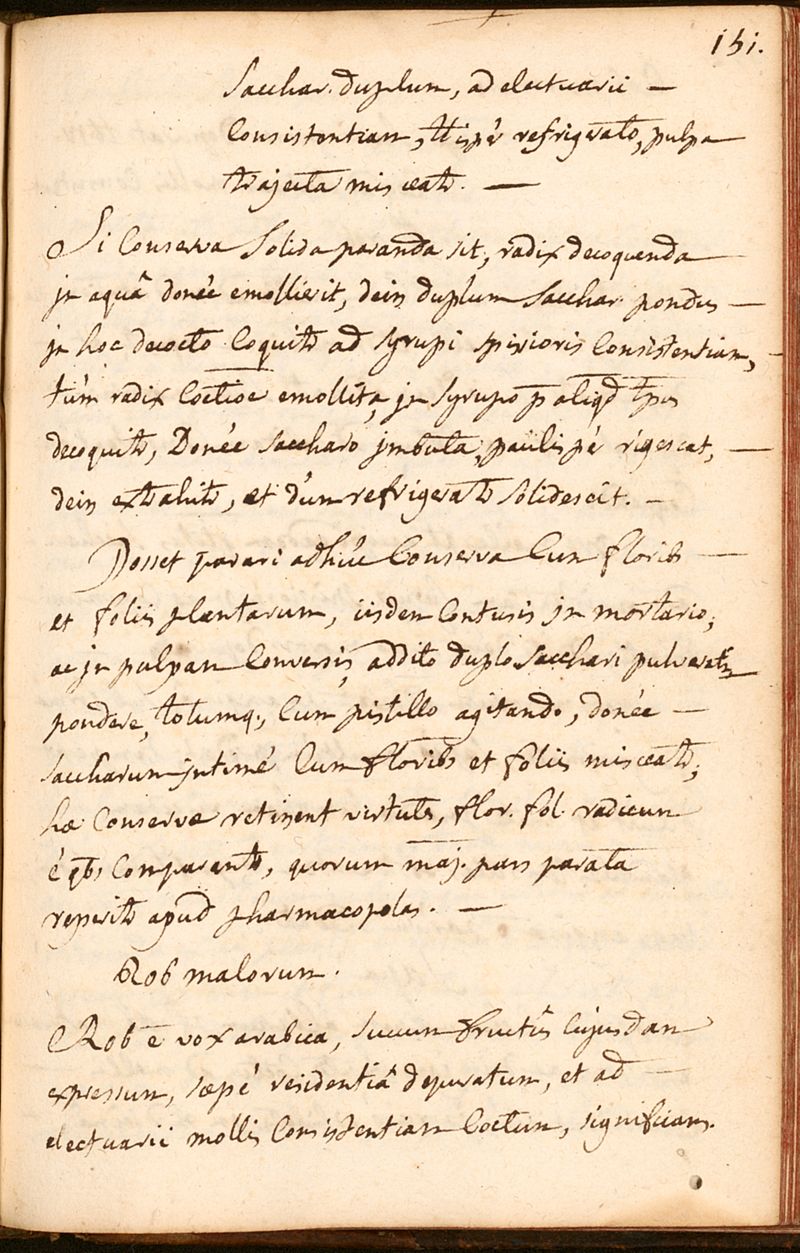 151.
Sacchar. duplum, ad electuarii —
Consistentiam, refrigerato, pulpa
trajecta misceatr. —
Si Conserva Solida paranda sit, radix decoquenda —
jn aquâ donéc emollierit, dein duplum Sacchar. pondus —
jn hoc decocto Coquitr ad Syrupi spissioris Consistentiam, —
túm radix Coctioe emollita, jn Syrupo p aliqd tps
decoquitr, Donéc saccharo jmbuta, paulispé rigescat, —
dein extrahitr, et dúm refrigeratr solidescit. —
Posset parari adhúc Conserva Cum floribs —
et foliis plantarum, iisdem Contusis jn mortario,
ac jn pulpam Conversis, addito duplo Sacchari pulverati
pondere, totumq;, Cum pistillo agitando, donéc —
saccharum jntimé Cum floribs et foliis misceatr;
hæ Conservæ retinent virtutes, flor. fol. radicum
é qbs Comparantr, quorum maj. pars parata
reperitr apud pharmacopolas. —
Rob malorum.
Rob ē vox arabica, Succum fructûs Cujusdam
expressum, sæpé residentiâ depuratum, et ad —
electuarii mollis Consistentiam Coctum, significans.